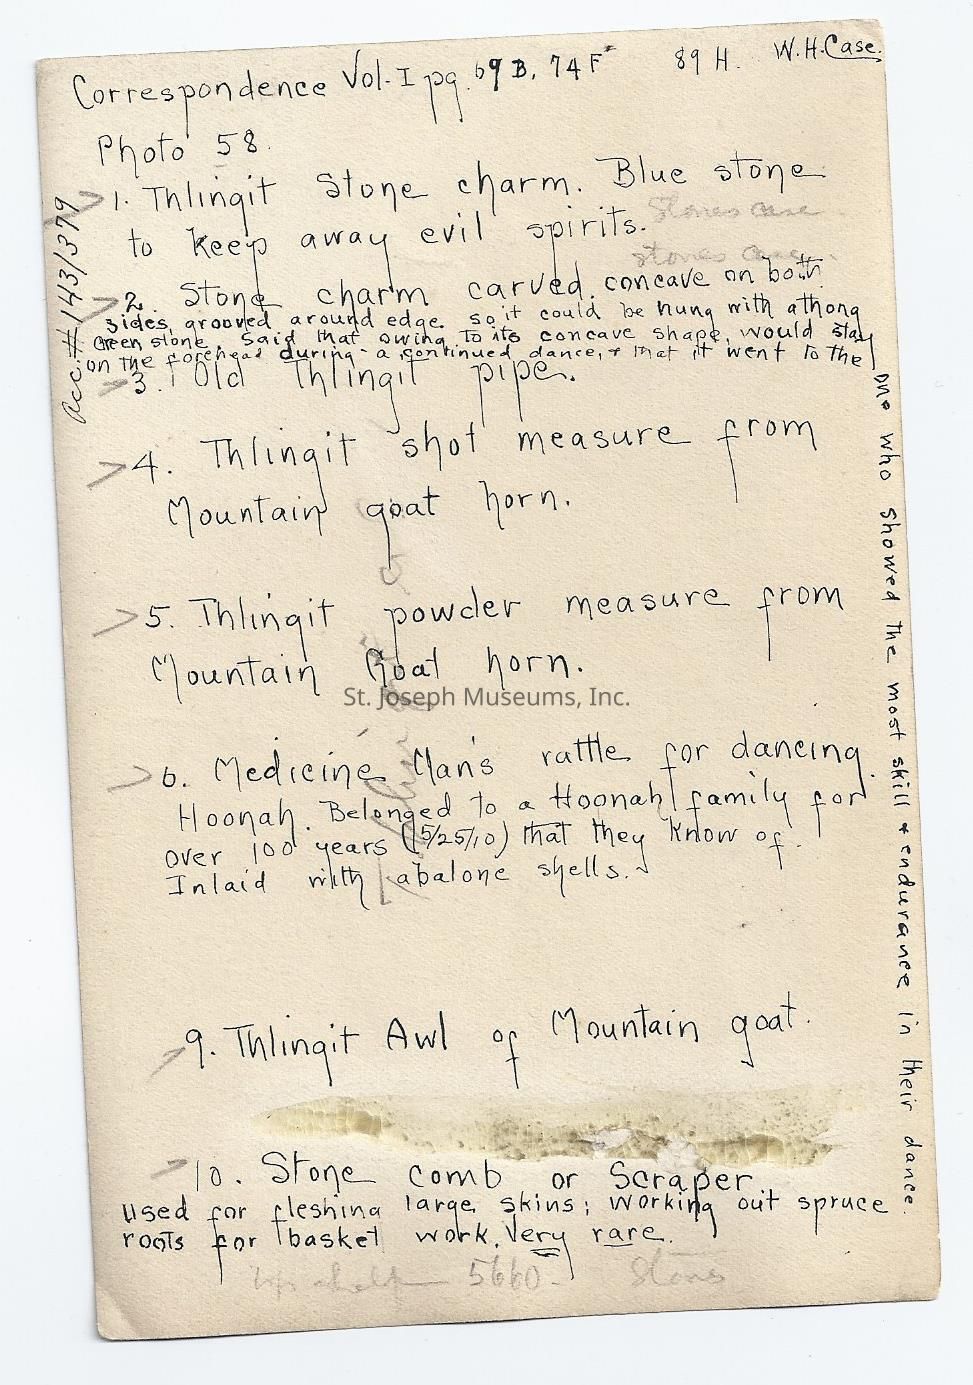 Correspondence Vol. I pg. 69 B, 74 F 89 H. W.H. Case.
Photo 58.
Acc.# 143/379
1. Thlingit Stone charm. Blue stone
Stones case
to keep away evil spirits.
stones case
2. Stone charm carved, concave on both
sides, grooved around edge so it could be hung with a thong
Green stone. Said that owing to its concave shape, would stay
on the forehead during a continued dance, & that it went to the
one who showed the most skill & endurance in their dance.
3. Old Thlingit pipe.
4. Thlingit shot measure from
Mountain goat horn.
5. Thlingit powder measure from
Mountain Goat horn.
St. Joseph Museums, Inc.
6. Medicine Man's rattle for dancing.
Hoonah. Belonged to a Hoonah family for
over 100 years (5/25/10) that they know of.
Inlaid with abalone shells.
9. Thlingit Awl of Mountain goat.
10. Stone comb or Scraper.
Used for fleshing large skins; working out spruce
roots for basket work. Very rare.
5660. Stones